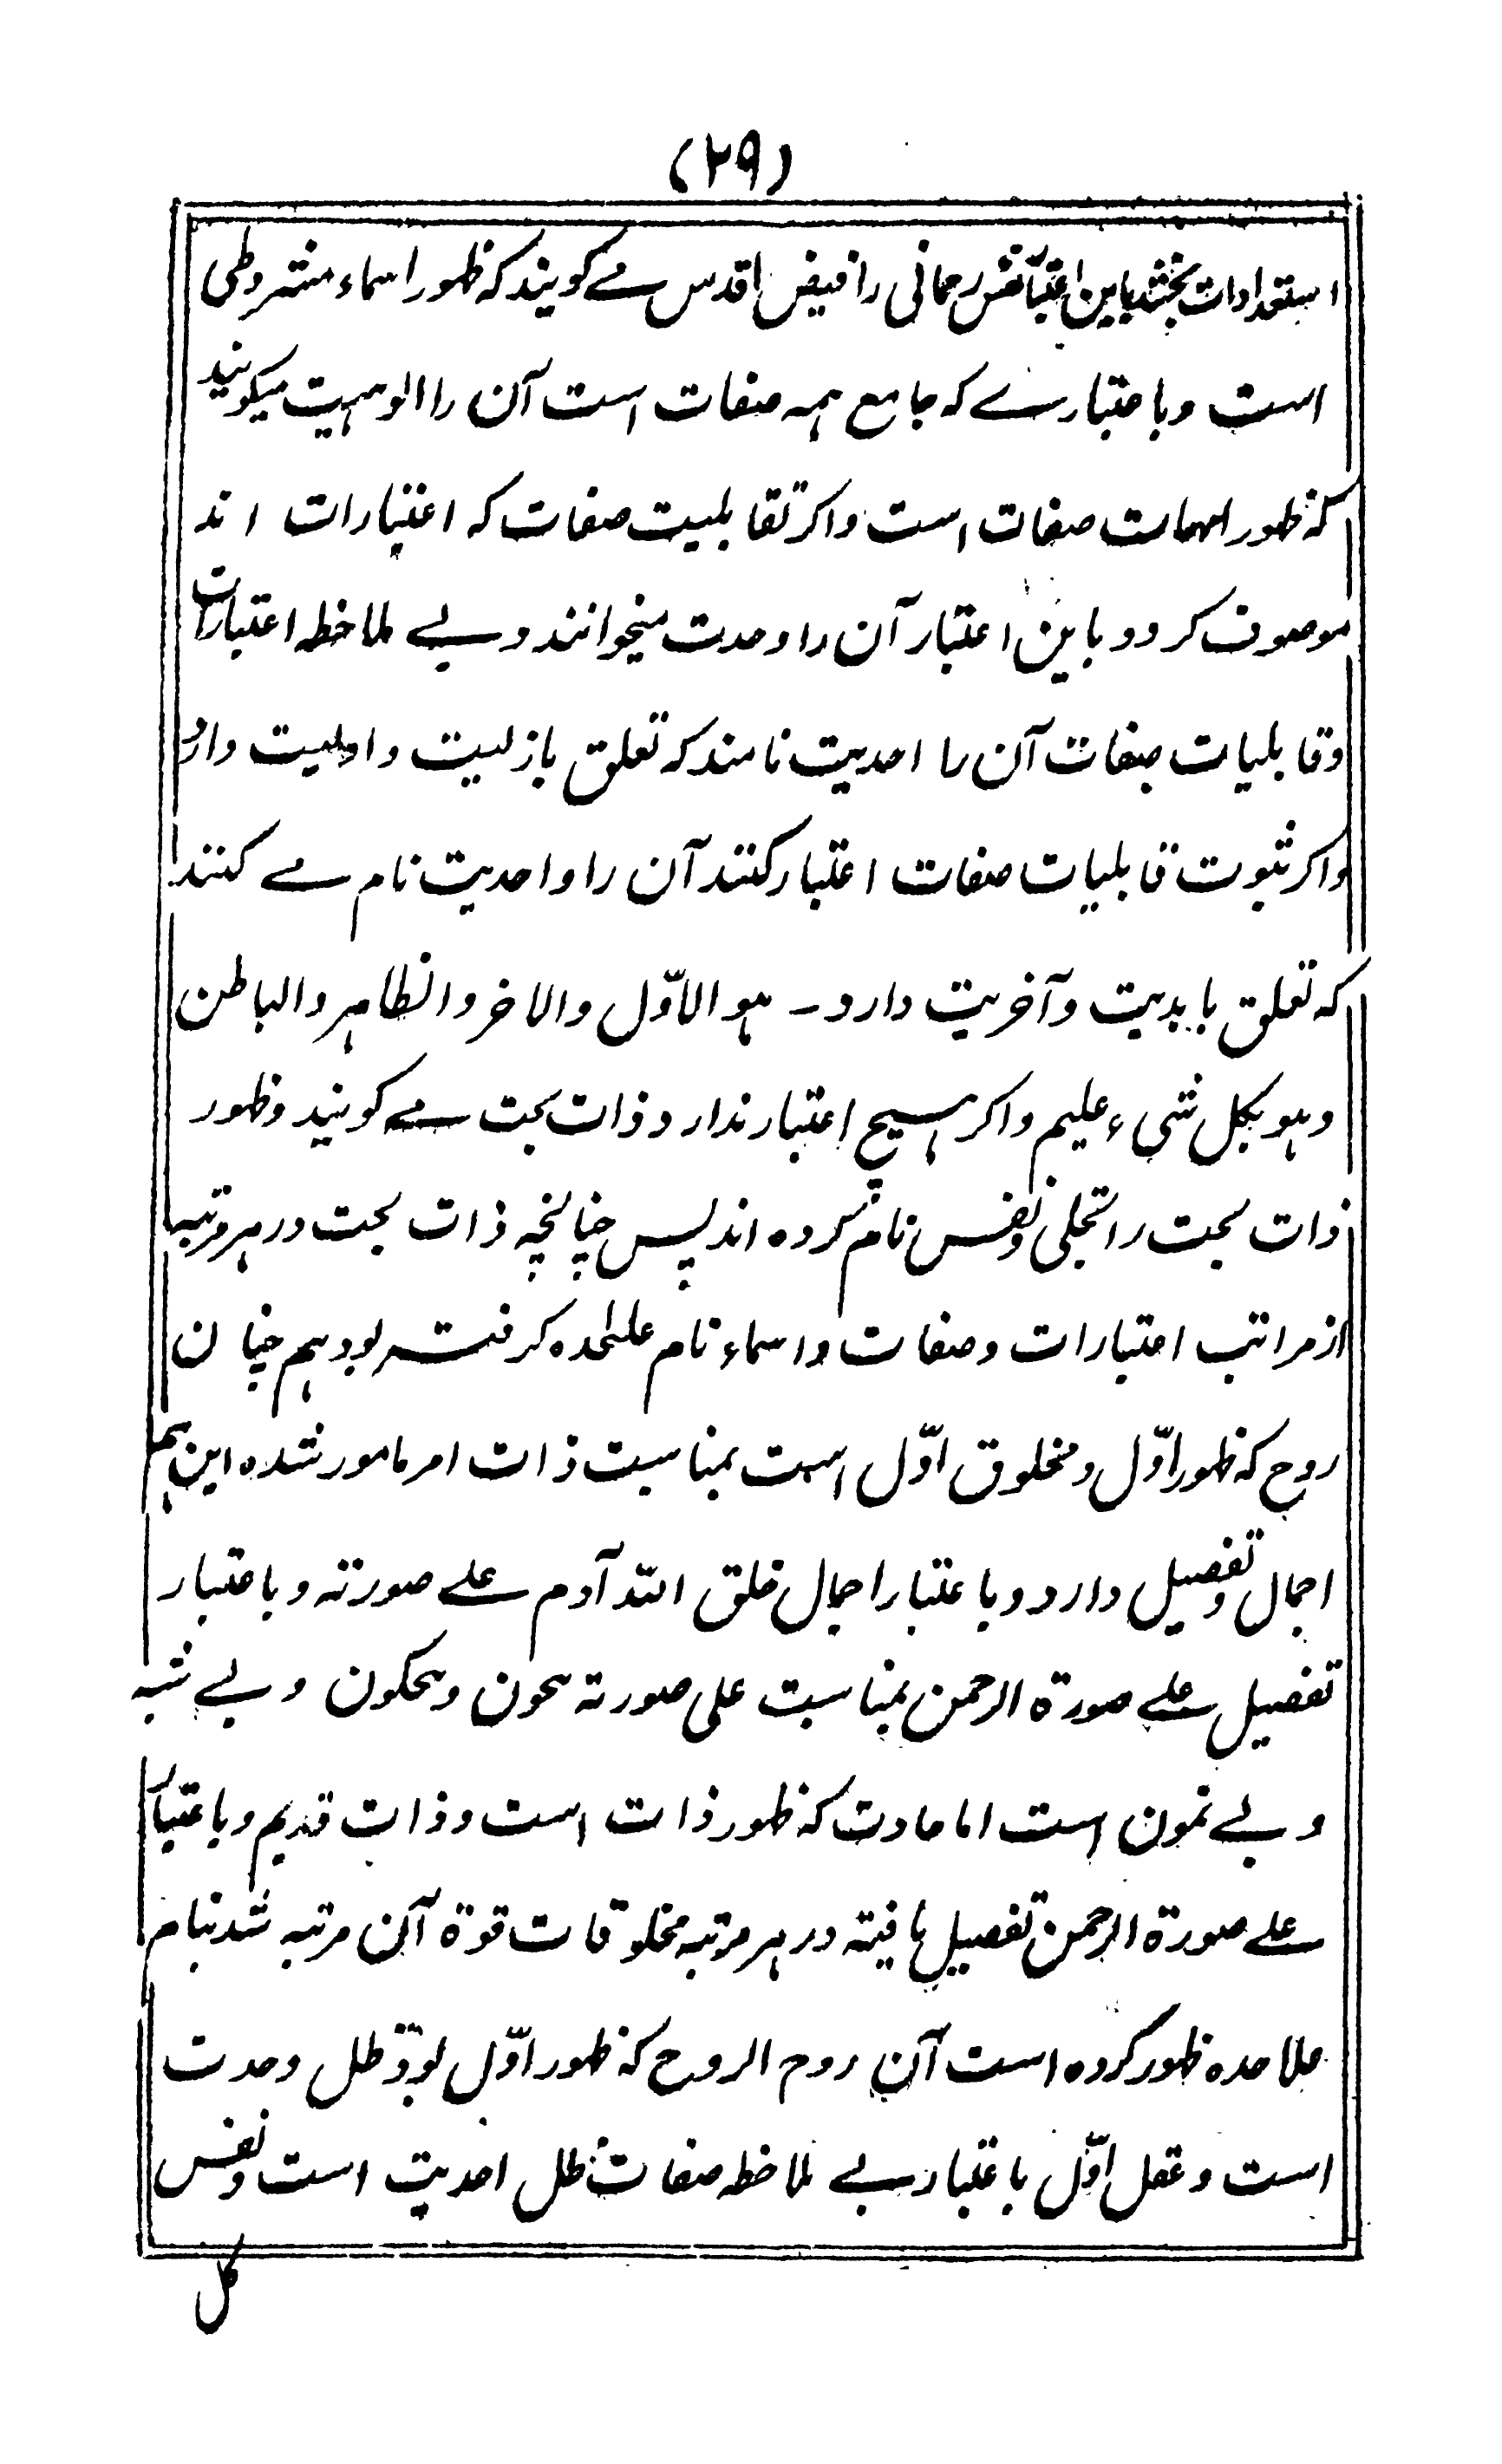 (۲۹)
استعدادات بخشد باین اعتبار نفس رحمانی را فیض اقدس مے کویند که ظهور اسماء مشروطی
است و باعتبارے که جامع همه صفات است آن را الوهیت میکویند
که ظهور امهات صفات است واکر بقابلیت صفات که اعتبارات اند
موصوف کردد باین اعتبار آن را وحدت میخوانند و بے ملاحظه اعتبارات
وقابلیات صفات آن را احدیت نامند که تعلق بازلیت واولیت دارد
واکر ثبوت قابلیات صفات اعتبار کنند آن را واحدیت نام مے کنند
که تعلق بابدیت وآخریت دارد ـ هو الاوّل والاخر والظاهر والباطن
وهو بکل شیء علیم واکر هیچ اعتبار ندارد ذات بحت مے کویند وظهور
ذات بحت را تجلی ونفس نام کرده اند پس چنانچه ذات بحت در هر مرتبه
از مراتب اعتبارات وصفات واسماء نام علٰحده کرفته بود هم چنان
روح که ظهور اوّل ومخلوق اوّل است بمناسبت ذات امر مامور شده این هم
اجمال وتفصیل دارد و باعتبار اجمال خلق الله آدم علے صورته و باعتبار
تفصیل علے صورة الرحمن بمناسبت علی صورته بیچون وبیچکون و بے شبه
و بے نمون است اما حادث که ظهور ذات است وذات قدیم و باعتبار
علے صورة الرحمن تفصیل یافته در هر مرتبه مخلوقات قوة آن مرتبه شد بنام
علاحده ظهور کرده است آن روح الروح که ظهور اوّل بود ظل وحدت
است وعقل اوّل باعتبار بے ملاحظه صفات ظل احدیت است ونفس
کل